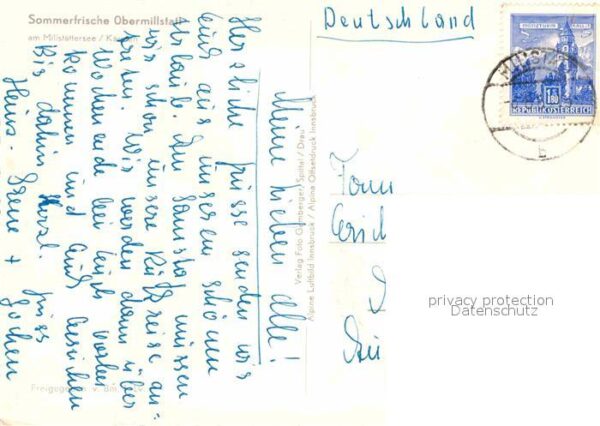 Sommerfrische Obermillstatt
am Millstättersee / Kä
Deutschland
REPUBLIK ÖSTERREICH
1.80
Meine Lieben alle!
Herzliche Grüsse senden wir
Euch aus unserem schönen
Urlaub. Am Samstag müssen
wir schon unsere Rückreise an-
treten. Wir werden dann übers
Wochenende bei Euch vorbei
kommen und Euch besuchen
Bis dahin Herzl. Grüss
Heinz. Irene + Jochen
Verlag Foto Gamberger, Spittal / Drau
Alpine Luftbild Innsbruck / Alpine Offsetdruck Innsbruck
Fam
privacy protection
Datenschutz